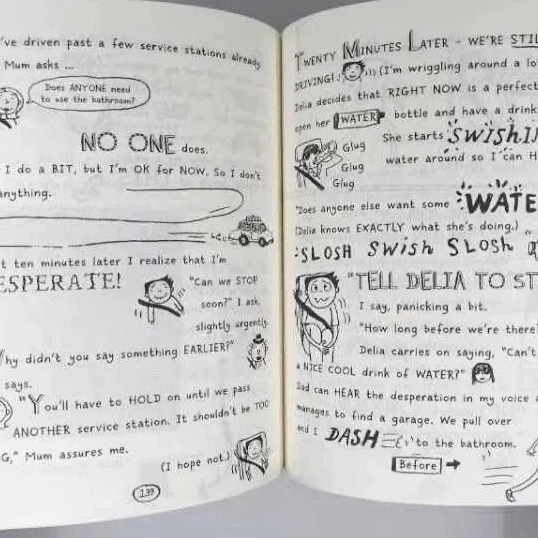 've driven past a few service stations already
Mum asks ...
Does ANYONE need
to use the bathroom?
NO ONE does.
I do a BIT, but I'm OK for NOW. So I don't
anything.
t ten minutes later I realize that I'm
ESPERATE!
"Can we STOP
soon?" I ask,
slightly urgently.
hy didn't you say something EARLIER?"
says.
"You'll have to HOLD on until we pass
ANOTHER service station. It shouldn't be TOO
G," Mum assures me.
(I hope not.)
139
TWENTY MINUTES LATER - WE'RE STIL
DRIVING! (I'm wriggling around a lo
Delia decides that RIGHT NOW is a perfect
open her WATER bottle and have a drink
Glug
Glug
Glug
She starts SWISHIN
water around so I can H
"Does anyone else want some WATE
(Delia knows EXACTLY what she's doing.)
SLOSH SWish SLOSH
"TELL DELIA TO ST
I say, panicking a bit.
"How long before we're there?
Delia carries on saying, "Can't
a NICE COOL drink of WATER?"
Dad can HEAR the desperation in my voice
manages to find a garage. We pull over
and I DASH to the bathroom.
Before